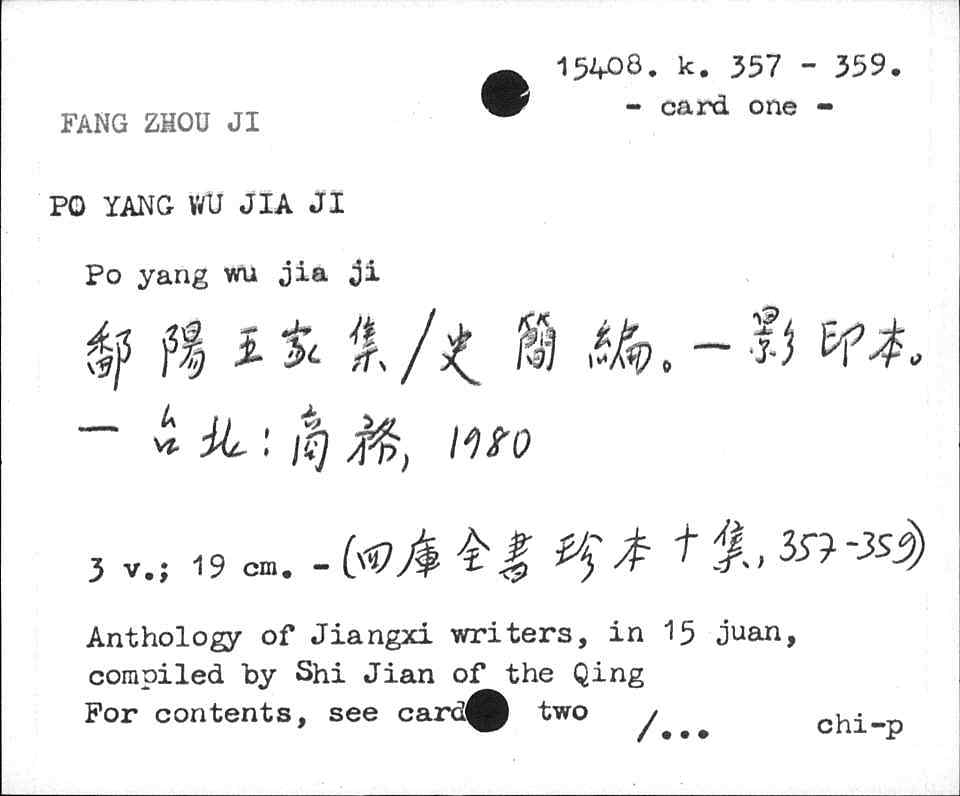 15408. k. 357 - 359.
- card one -
FANG ZHOU JI
PO YANG WU JIA JI
Po yang wu jia ji
鄱陽五家集/史簡編。—影印本。
—台北:商務, 1980
3 v.; 19 cm. -(四庫全書珍本十集, 357-359)
Anthology of Jiangxi writers, in 15 juan,
compiled by Shi Jian of the Qing
For contents, see card two
/... chi-p